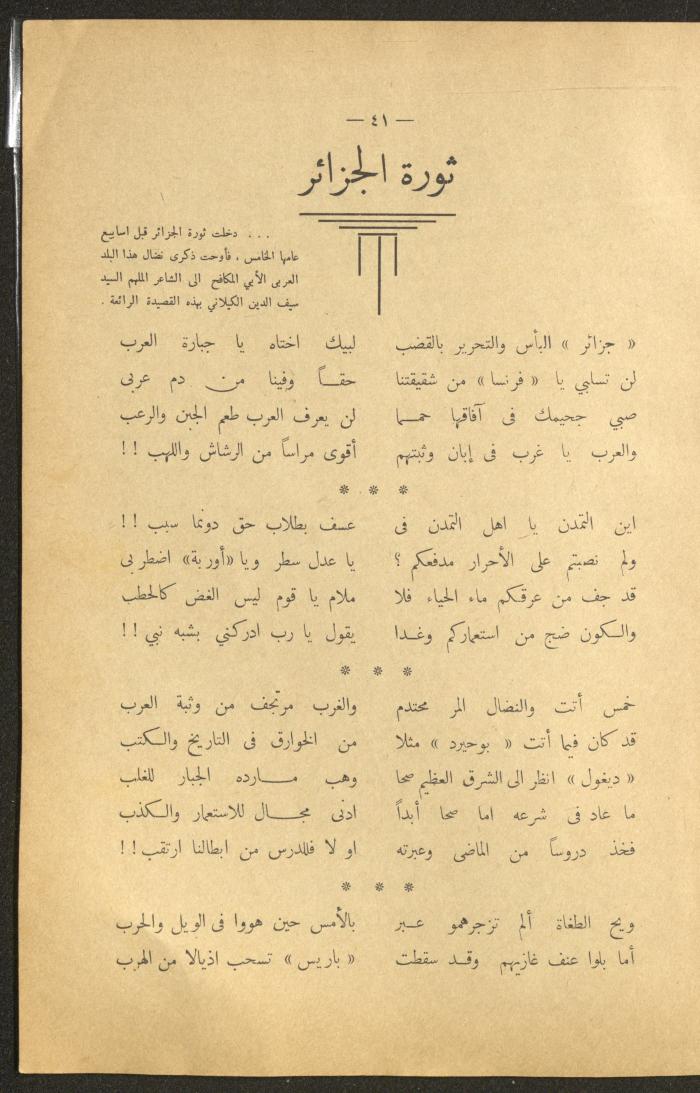 — ٤١ —
ثورة الجزائر
. . . دخلت ثورة الجزائر قبل اسابيع
عامها الخامس ، فأوحت ذكرى نضال هذا البلد
العربي الأبي المكافح الى الشاعر الملهم السيد
سيف الدين الكيلاني بهذه القصيدة الرائعة .
« جزائر » البأس والتحرير بالقضب لبيك اختاه يا جبارة العرب
لن تسلبي يا « فرنسا » من شقيقتنا حقـاً وفينا من دم عربى
صبي جحيمك فى آفاقها حمـا لن يعرف العرب طعم الجبن والرعب
والعرب يا غرب فى إبان وثبتهم أقوى مراساً من الرشاش واللهب ! !
* * *
اين التمدن يا اهل التمدن فى عسف بطلاب حق دونما سبب ! !
ولم نصبتم على الأحرار مدفعكم ؟ يا عدل سطر ويا «أوربة» اضطربى
قد جف من عرقكم ماء الحياء فلا ملام يا قوم ليس الغض كالحطب
والكون ضج من استعماركم وغـدا يقول يا رب ادركني بشبه نبي ! !
* * *
خمس أتت والنضال المر محتدم والغرب مرتجف من وثبة العرب
قد كان فيما أتت « بوحيرد » مثلا من الخوارق فى التاريخ والكتب
« ديغول » انظر الى الشرق العظيم صحا وهب مـارده الجبار للغلب
ما عاد فى شرعه اما صحا أبداً ادنى مجـال للاستعمار والكذب
فخذ دروساً من الماضى وعبرته او لا فللدرس من ابطالنا ارتقب ! !
* * *
ويح الطغاة ألم تزجرهمو عـبر بالأمس حين هووا فى الويل والحرب
أما بلوا عنف غازيهم وقـد سقطت « باريس » تسحب اذيالا من الهرب